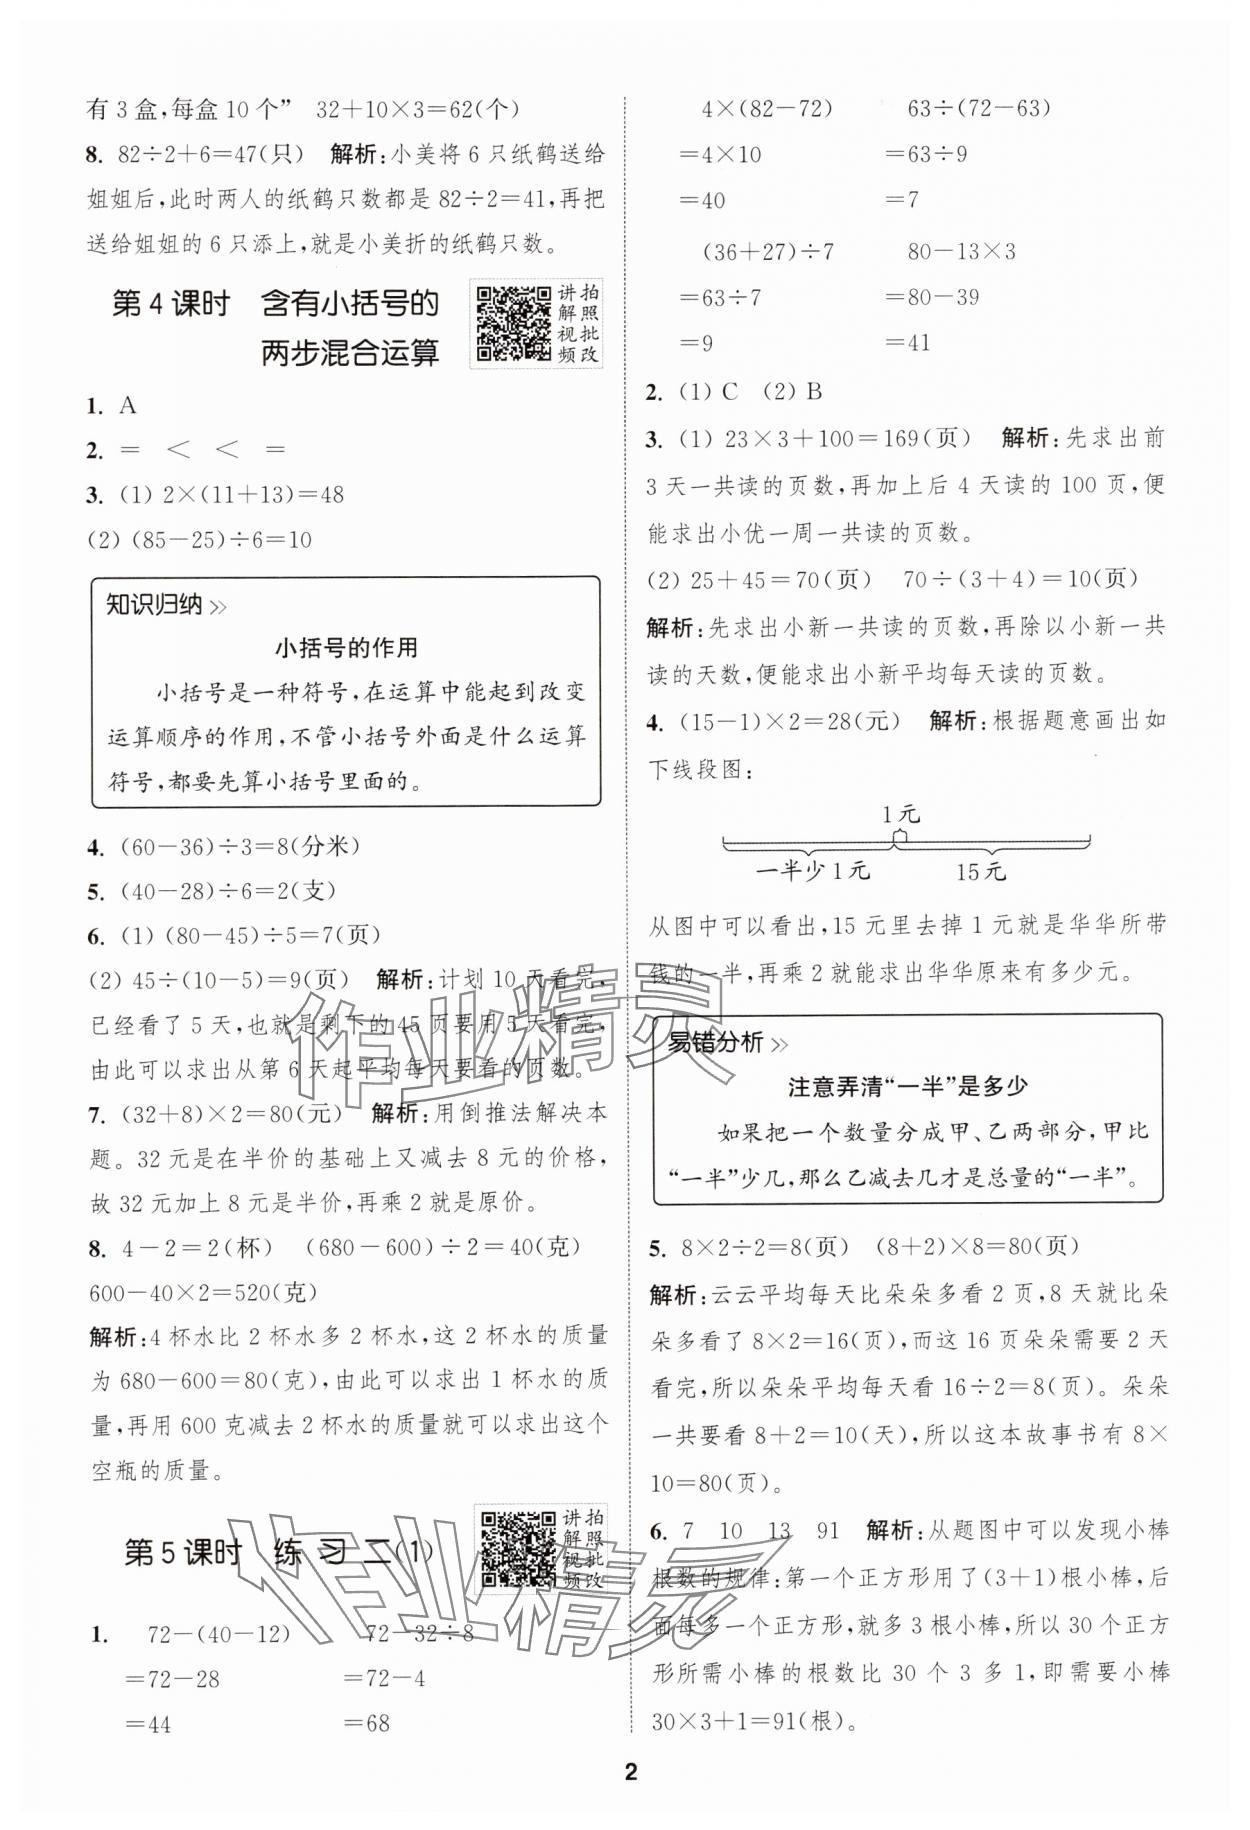 有3盒,每盒10个” 32+10×3=62(个)
8. 82÷2+6=47(只) 解析:小美将6只纸鹤送给
姐姐后,此时两人的纸鹤只数都是82÷2=41,再把
送给姐姐的6只添上,就是小美折的纸鹤只数。
第4课时 含有小括号的
两步混合运算
讲拍
解照
视批
频改
1. A
2. = < < =
3. (1) 2×(11+13)=48
(2) (85-25)÷6=10
知识归纳>>
小括号的作用
小括号是一种符号,在运算中能起到改变
运算顺序的作用,不管小括号外面是什么运算
符号,都要先算小括号里面的。
4. (60-36)÷3=8(分米)
5. (40-28)÷6=2(支)
6. (1) (80-45)÷5=7(页)
(2) 45÷(10-5)=9(页) 解析:计划10天看完,
已经看了5天,也就是剩下的45页要用5天看完,
由此可以求出从第6天起平均每天要看的页数。
7. (32+8)×2=80(元) 解析:用倒推法解决本
题。32元是在半价的基础上又减去8元的价格,
故32元加上8元是半价,再乘2就是原价。
8. 4-2=2(杯) (680-600)÷2=40(克)
600-40×2=520(克)
解析:4杯水比2杯水多2杯水,这2杯水的质量
为680-600=80(克),由此可以求出1杯水的质
量,再用600克减去2杯水的质量就可以求出这个
空瓶的质量。
第5课时 练习二(1)
讲拍
解照
视批
频改
1. 72-(40-12) 72-32÷8
=72-28 =72-4
=44 =68
4×(82-72) 63÷(72-63)
=4×10 =63÷9
=40 =7
(36+27)÷7 80-13×3
=63÷7 =80-39
=9 =41
2. (1) C (2) B
3. (1) 23×3+100=169(页) 解析:先求出前
3天一共读的页数,再加上后4天读的100页,便
能求出小优一周一共读的页数。
(2) 25+45=70(页) 70÷(3+4)=10(页)
解析:先求出小新一共读的页数,再除以小新一共
读的天数,便能求出小新平均每天读的页数。
4. (15-1)×2=28(元) 解析:根据题意画出如
下线段图:
1元
一半少1元 15元
从图中可以看出,15元里去掉1元就是华华所带
钱的一半,再乘2就能求出华华原来有多少元。
易错分析>>
注意弄清“一半”是多少
如果把一个数量分成甲、乙两部分,甲比
“一半”少几,那么乙减去几才是总量的“一半”。
5. 8×2÷2=8(页) (8+2)×8=80(页)
解析:云云平均每天比朵朵多看2页,8天就比朵
朵多看了8×2=16(页),而这16页朵朵需要2天
看完,所以朵朵平均每天看16÷2=8(页)。朵朵
一共要看8+2=10(天),所以这本故事书有8×
10=80(页)。
6. 7 10 13 91 解析:从题图中可以发现小棒
根数的规律:第一个正方形用了(3+1)根小棒,后
面每多一个正方形,就多3根小棒,所以30个正方
形所需小棒的根数比30个3多1,即需要小棒
30×3+1=91(根)。
2
作业精灵
作业精灵